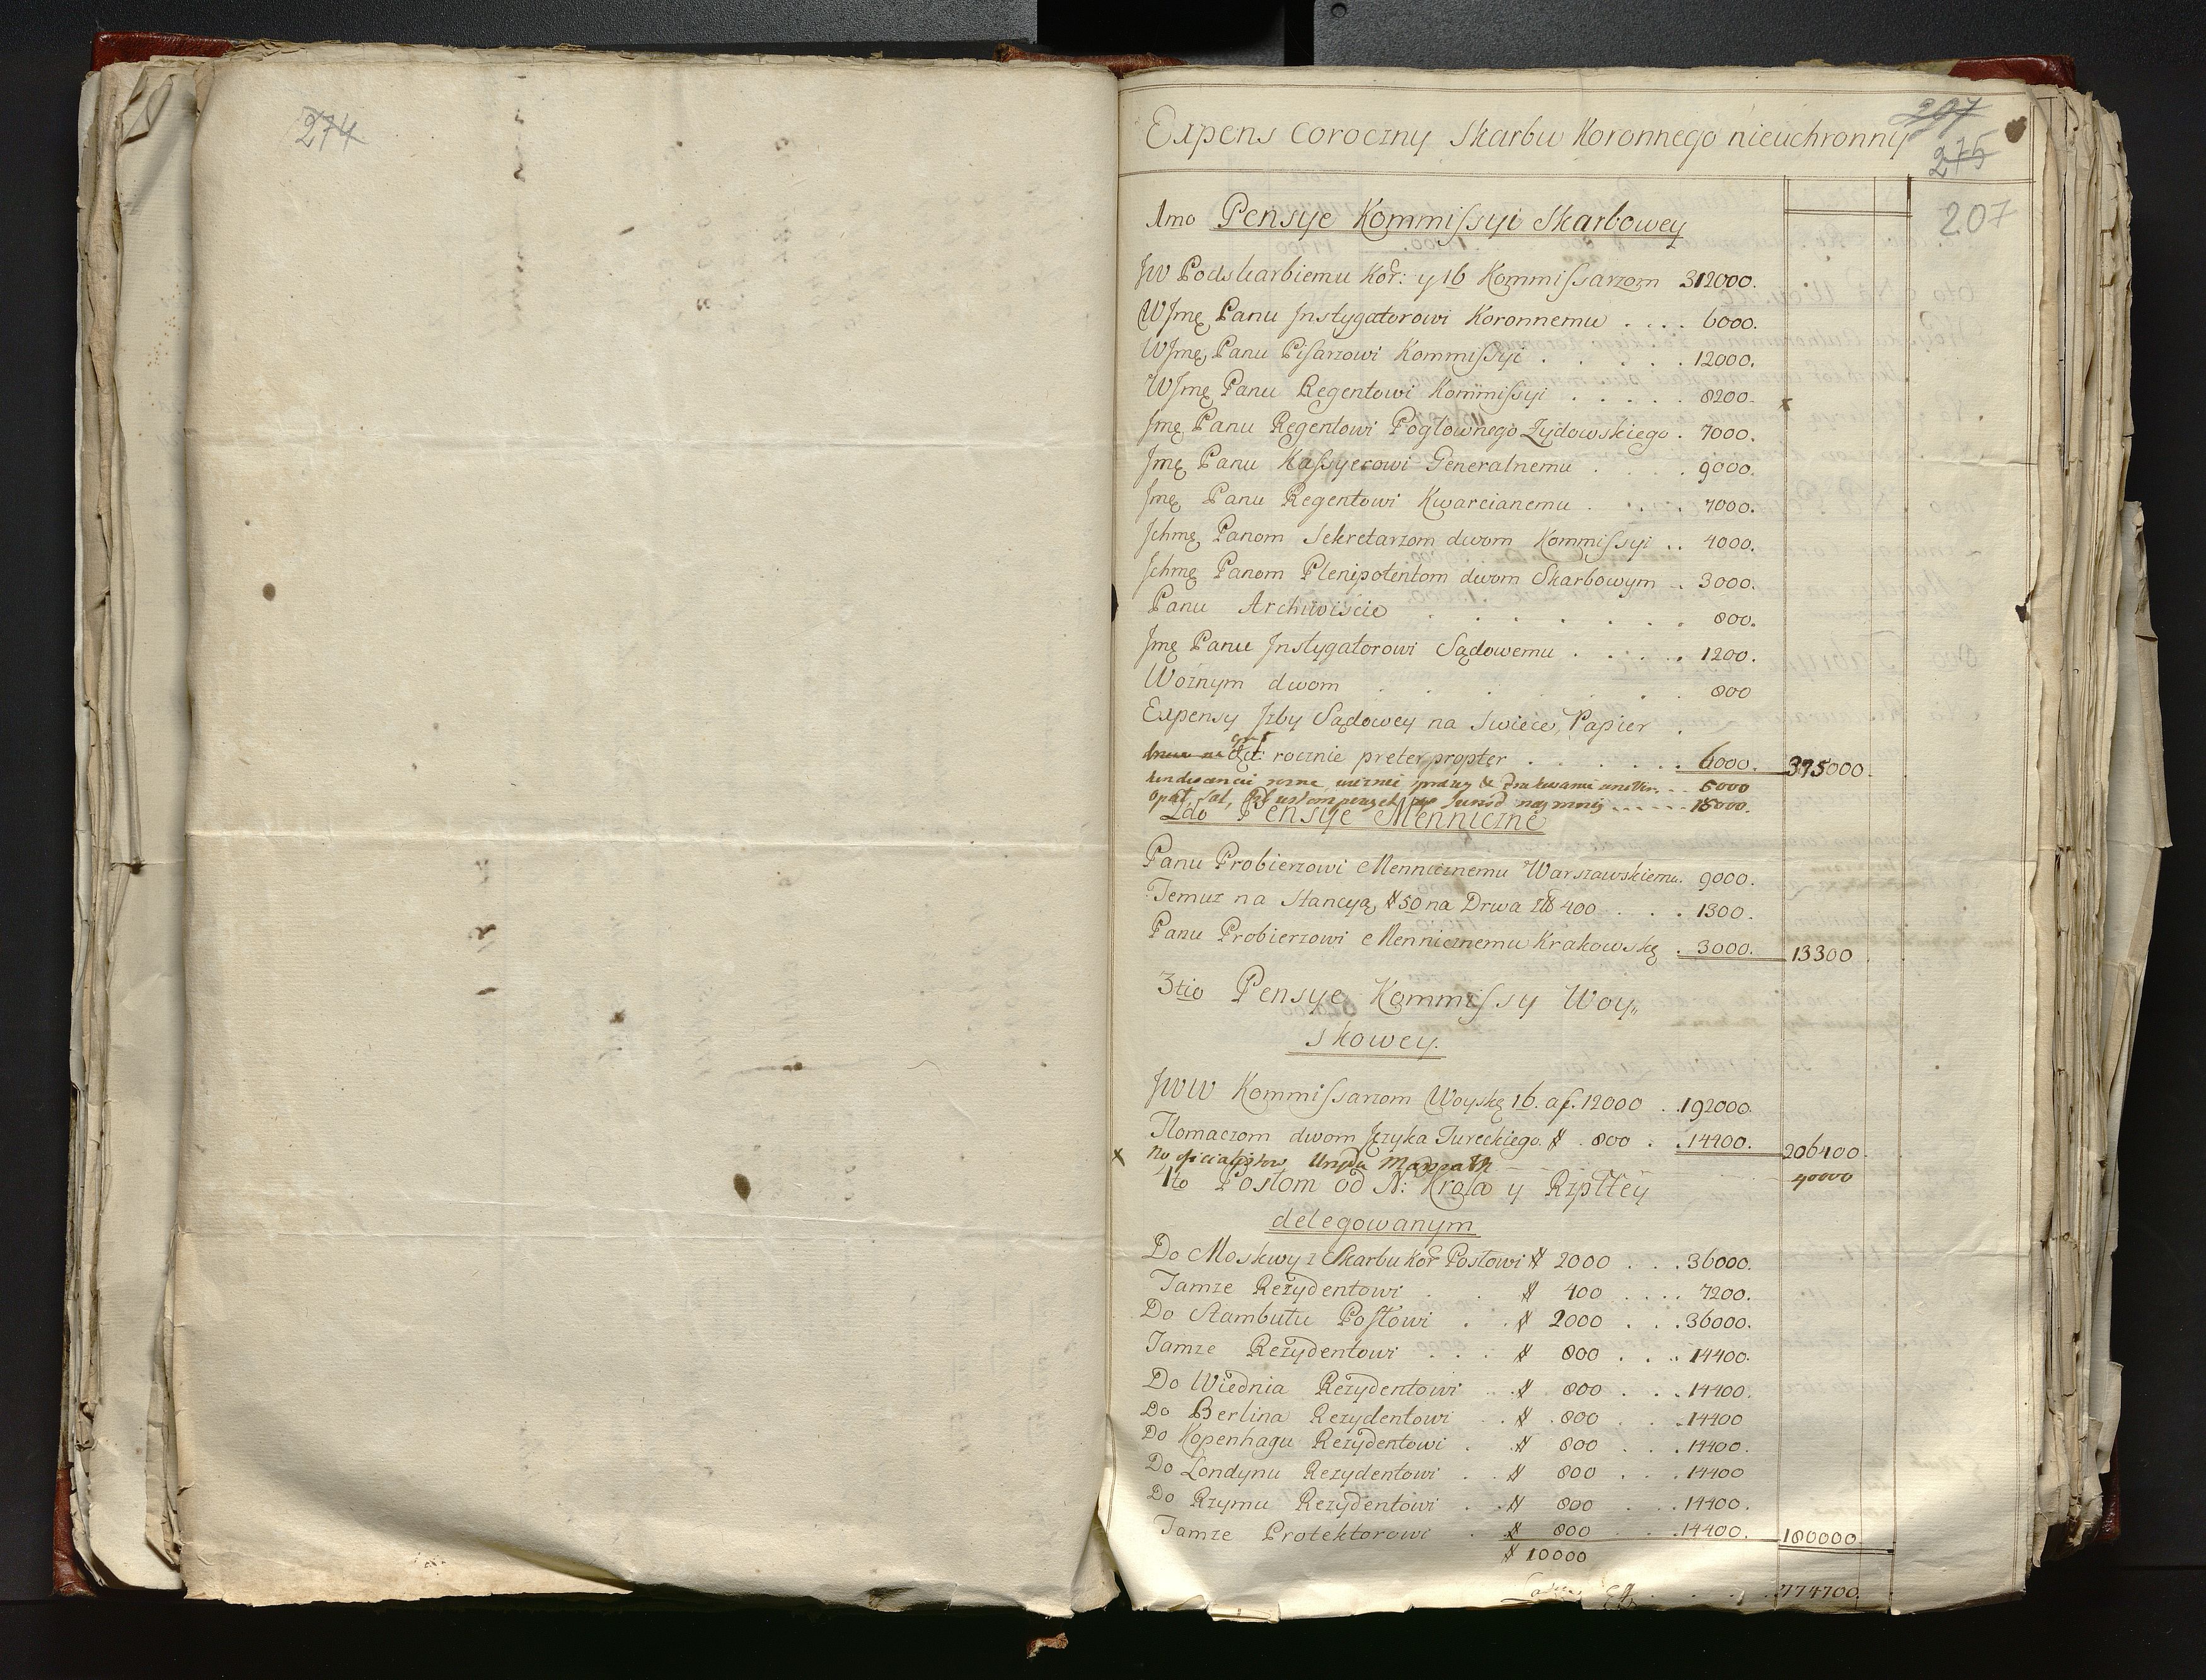 274
Expens coroczny Skarbu Koronnego nieuchronny
207
275
207
1mo Pensye Kommissyi Skarbowey
JW Podskarbiemu Kor: y 16 Kommissarzom 312000.
WJmę Panu Instygatorowi Koronnemu . . . . 6000.
WJmę Panu Pisarzowi Kommissyi . . . . . 12000.
WJmę Panu Regentowi Kommissyi . . . . . 8200
Jmę Panu Regentowi Pogłownego Żydowskiego . 7000.
Jmę Panu Kassyerowi Generalnemu . . . . 9000.
Jmę Panu Regentowi Kwarcianemu . . . . 7000.
Jchmę Panom Sekretarzom dwom Kommissyi . . 4000.
Jchmę Panom Plenipotentom dwom Skarbowym . . 3000.
Panu Archiwiście . . . . . . . 800.
Jmę Panu Instygatorowi Sądowemu . . . . . 1200.
Woznym dwom . . . . . . 800
Expensy Jzby Sądowey na Swiece, Papier .
&ct: rocznie preter propter . . . . . . . 6000. 375000.
6000
Opał, . . . . . . 18000.
2do Pensye Menniczne
Panu Probierzowi Mennicznemu Warszawskiemu. 9000.
Temuz na Stancyą # 50 na Drwa zł 400 . . . 1300.
Panu Probierzowi Mennicznemu Krakowskę . 3000. 13300
3tio Pensye Kommissy Woy„
skowey.
JWW Kommissarzom Woyskę 16. a f. 12000 . . 192000.
Tłomaczom dwom Języka Tureckiego. # . 800 . . 14400. 206400.
40000
4to Posłom od N: Krola y Rzpltey
delegowanym
Do Moskwy z Skarbu Kor Posłowi # 2000 . . . 36000.
Tamze Rezydentowi . . # 400 . . . . 7200.
Do Stambułu Posłowi . . # 2000 . . . 36000.
Tamze Rezydentowi . . . # 800 . . . . 14400.
Do Wiednia Rezydentowi . . # 800 . . . 14400.
Do Berlina Rezydentowi . . # . 800 . . . 14400
Do Kopenhagu Rezydentowi . . # 800 . . . 14400.
Do Londynu Rezydentowi . . # 800 . . . 14400
Do Rzymu Rezydentowi . . # 800 . . . 14400.
Tamze Protektorowi . # 800 . . . 14400. 180000
# 10000
774700.